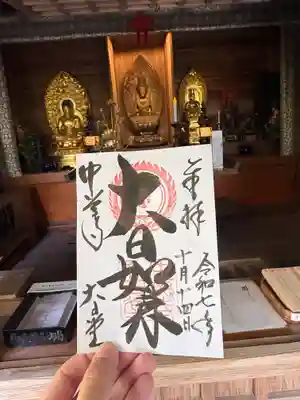 奉拝
令和七年
十月
大日如来
中尊寺
大日堂